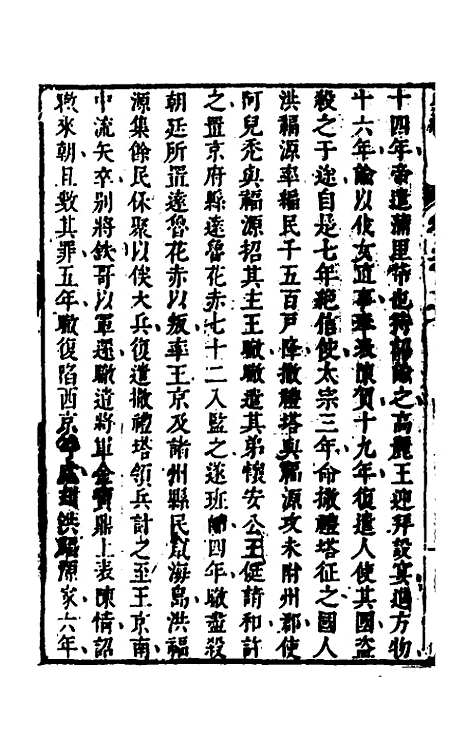 十四年帝遣蒲里帒也持詔諭之高麗王迎拜設宴進方物
十六年諭以伐女直事奉表陳賀十九年復遣人使其國盜
殺之于途自是七年絕信使太宗三年命撒禮塔征之國人
洪福源率編民千五百戶降撒禮塔與福源攻未附州郡使
阿兒禿與福源招其主王㬚㬚遣其弟懷安公王侹請和許
之置京府縣達魯花赤七十二人監之遂班師四年㬚盡殺
朝廷所置達魯花赤以叛率王京及諸州縣民竄海島洪福
源集餘民保聚以俟大兵復遣撒禮塔領兵討之至王京南
中流矢卒別將鉄哥以軍還㬚遣將軍金寶鼎上表陳情詔
㬚來朝且數其罪五年㬚復陷西京洪福源家六年